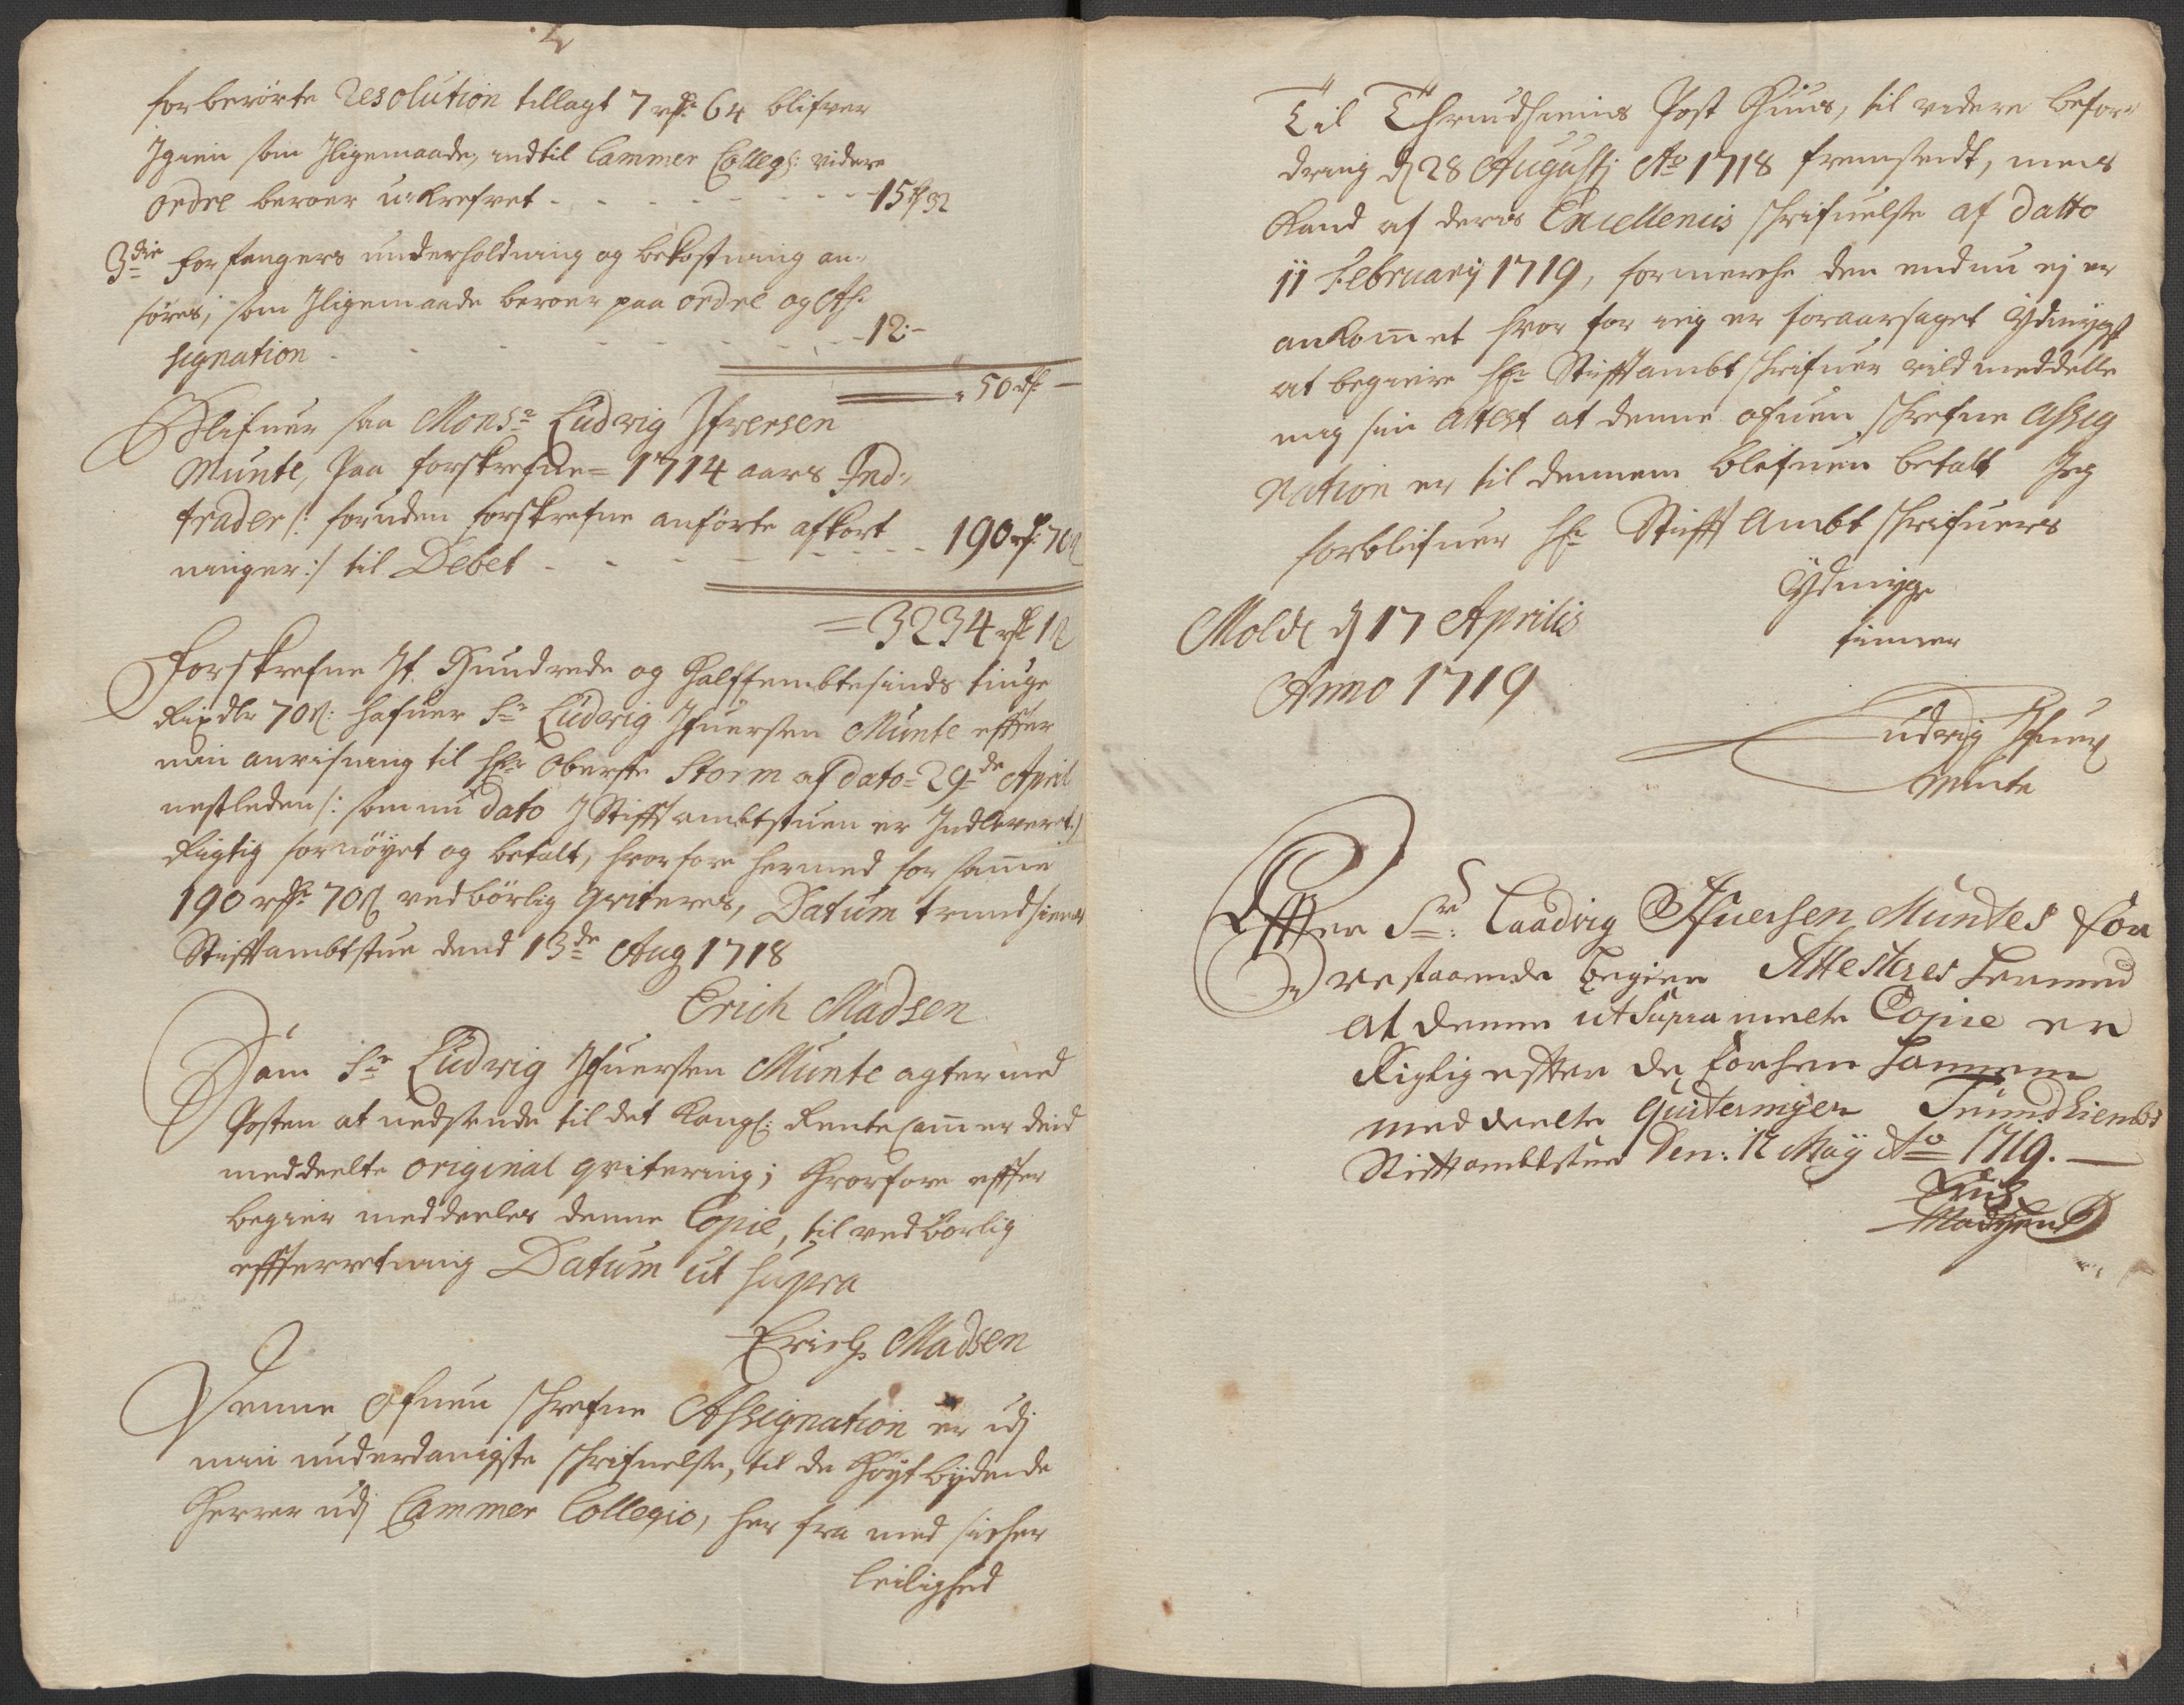 forberørte Resolution tillagt 7 rdr: 64 blifver
Igien som Iligemaade, indtil Cammer Colleg: videre
Ordre beroer u-krefvet - - - - - - - - 15 rdr 32
3die for fangers underholdning og bekostning an-
føres, som Iligemaade beroer paa ordre og As-
signation - - - - - - - - 12:-
50 rdr -
Blifuer saa Monsr Ludvig Ifversen
Munte, paa forskrefne = 1714 aars Ind-
trader /: foruden forskrefne anførte afkort
ninger :/ til Debet - - - - - - 190 rdr: 70 ß
= 3234 rdr 1 ß
Forskrefne Et Hundrede og Halffembtesinds tiuge
Rixdlr 70 ß: hafuer Sr Ludvig Ifuersen Munte effter
min anvisning til Hr Oberste Storm af dato = 29de April
nestleden /: som nu dato I Stifftambtstuen er Indleveret :/
Rigtig fornøyet og betalt, hvorfore hermed for samme
190 rdr: 70 ß vedbørlig qviteres, Datum trundhiembs
Stifftambtstue dend 13de Aug 1718
Erich Madsen
Som Sr Ludvig Ifuersen Munte agter med
Posten at nedsende til det Kongl: Rente Cammer deend
meddeelte original qvitering; Hvorfore effter
begier meddeeles denne Copie, til vedbørlig
effterretning Datum ut supra
Erich Madsen
Denne ofuen skrefne Assignation er udj
min underdanigste skrifuelse, til de Høyt bydende
Herrer udj Cammer Collegio, her fra med sicher
leilighed
Til Thrundhiems Post Huus, til videre befor-
dring d 28 Augustj Ao 1718 fremsendt, mens
Kand af deris Excellencis skrifuelse af Datto
11 February 1719, formerche den endnu ej er
ankommet hvor for ieg er foraarsaget Ydmygst
at begiere Hr Stifftambtskrifuer vild meddelle
mig sin attest at denne ofuen skrefne Assig
nation er til dennem blefuen betalt Jeg
forblifuer Hr Stifft Ambt skrifuers
Ydmyge
tiener
Molde d 17 Aprilis
Anno 1719
Ludvig Ifuers
Munte
Effter Sr: Laadvig Ifuersen Muntes for
restaaende begier Attesteres hermed
at denne ut supra melte Copie er
Rigtig effter de forhen hannem
meddeelte Quiteringer Trundhiembs
Stifftambtstue Den: 12 May Ao 1719. -
Erich
Madsen